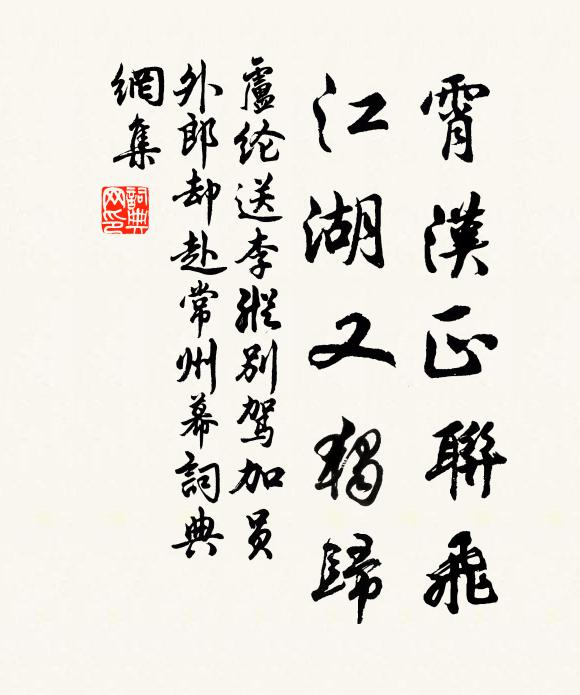 霄漢正聯飛
江湖又獨歸
盧纶送李縱別駕加员
外郎却赴常州幕詞典
網集
詞典
网印